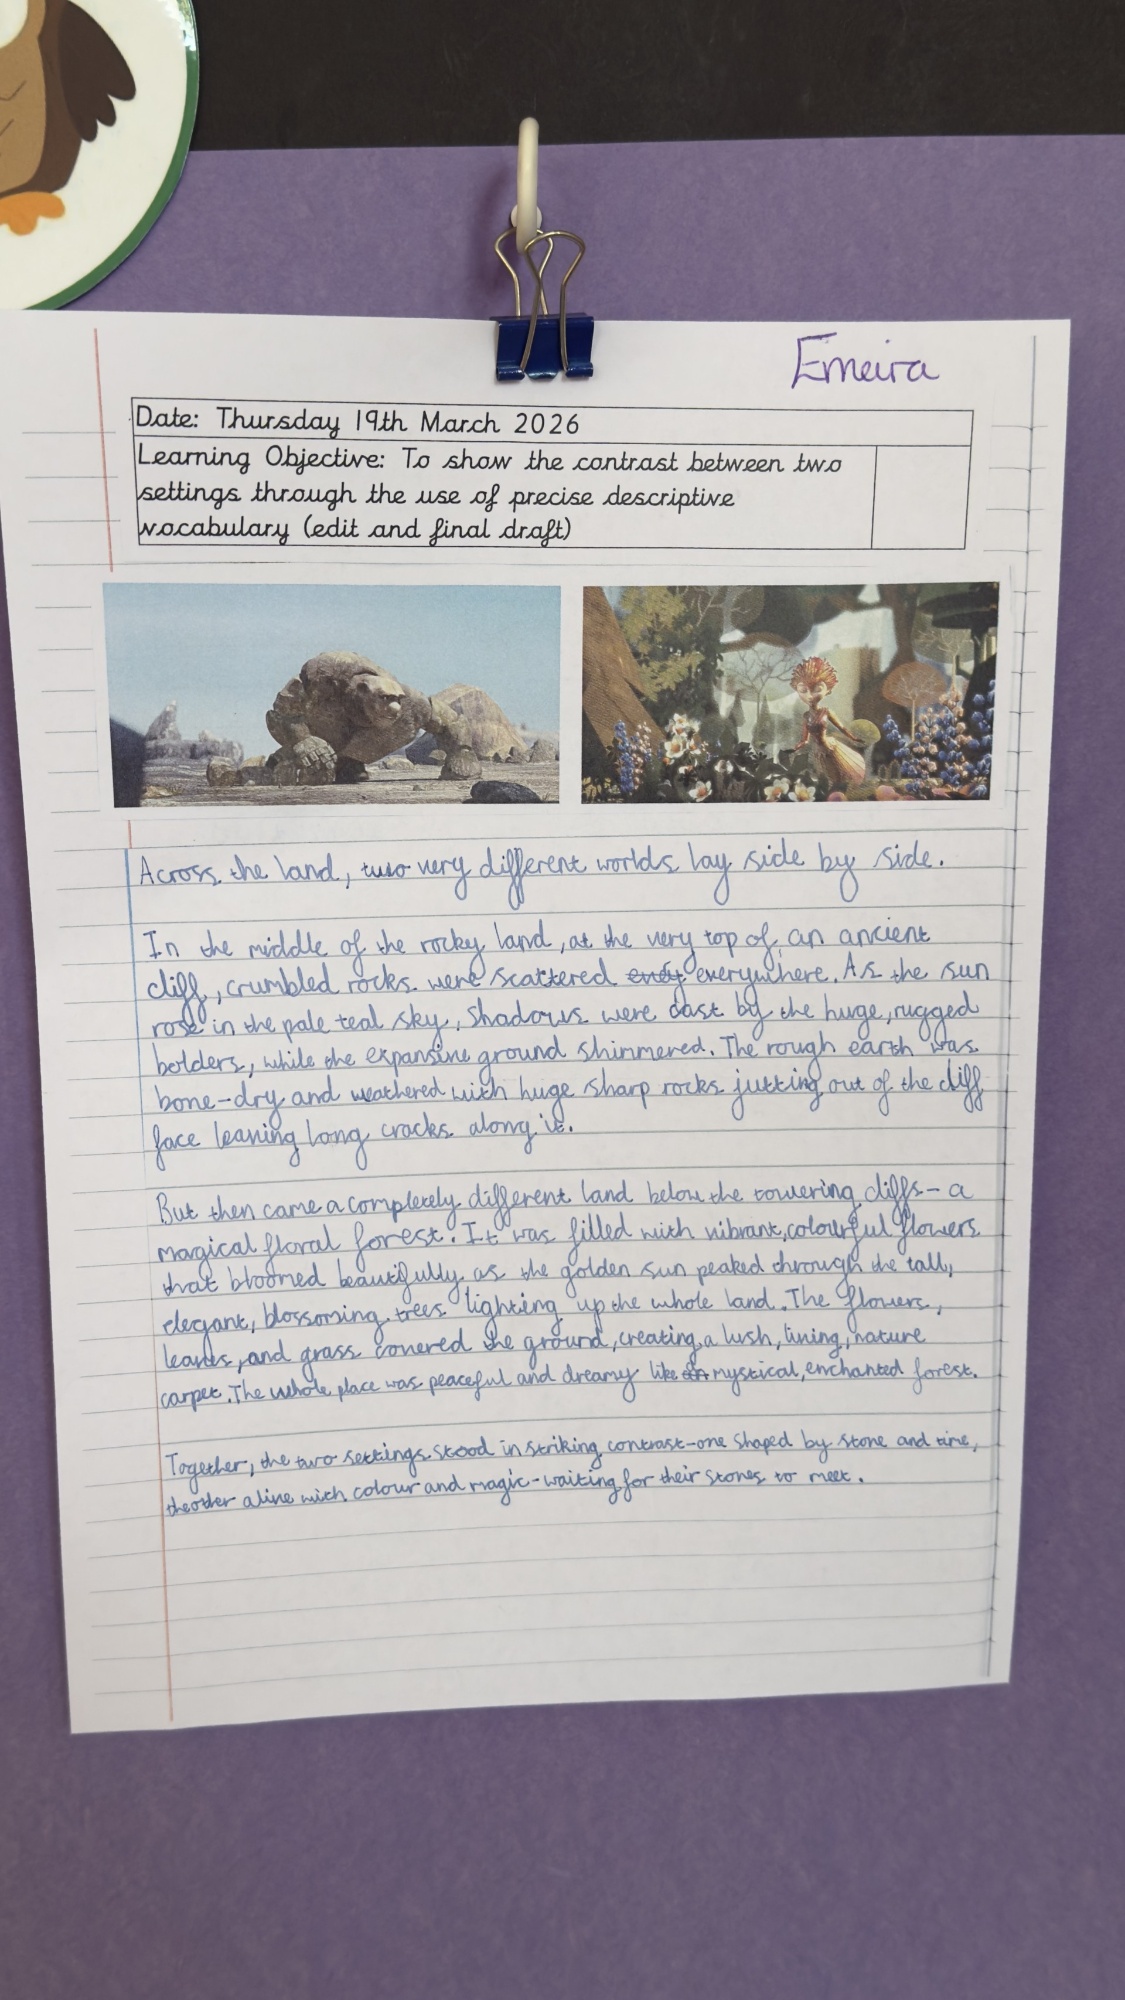 Emeira
Date: Thursday 19th March 2026
Learning Objective: To show the contrast between two
settings through the use of precise descriptive
vocabulary (edit and final draft)
Across the land, two very different worlds lay side by side.
In the middle of the rocky land, at the very top of an ancient
cliff, crumbled rocks were scattered everywhere. As the sun
rose in the pale teal sky, shadows were cast by the huge, rugged
bolders, while the expansive ground shimmered. The rough earth was
bone-dry and weathered with huge sharp rocks jutting out of the cliff
face leaving long cracks along it.
But then came a completely different land below the towering cliffs- a
magical floral forest. It was filled with vibrant, colourful flowers
that bloomed beautifully as the golden sun peaked through the tall,
elegant, blossoming trees lighting up the whole land. The flowers,
leaves, and grass covered the ground, creating a lush, living, nature
carpet. The whole place was peaceful and dreamy like mystical, enchanted forest.
Together, the two settings stood in striking contrast-one shaped by stone and time,
the other alive with colour and magic-waiting for their stories to meet.